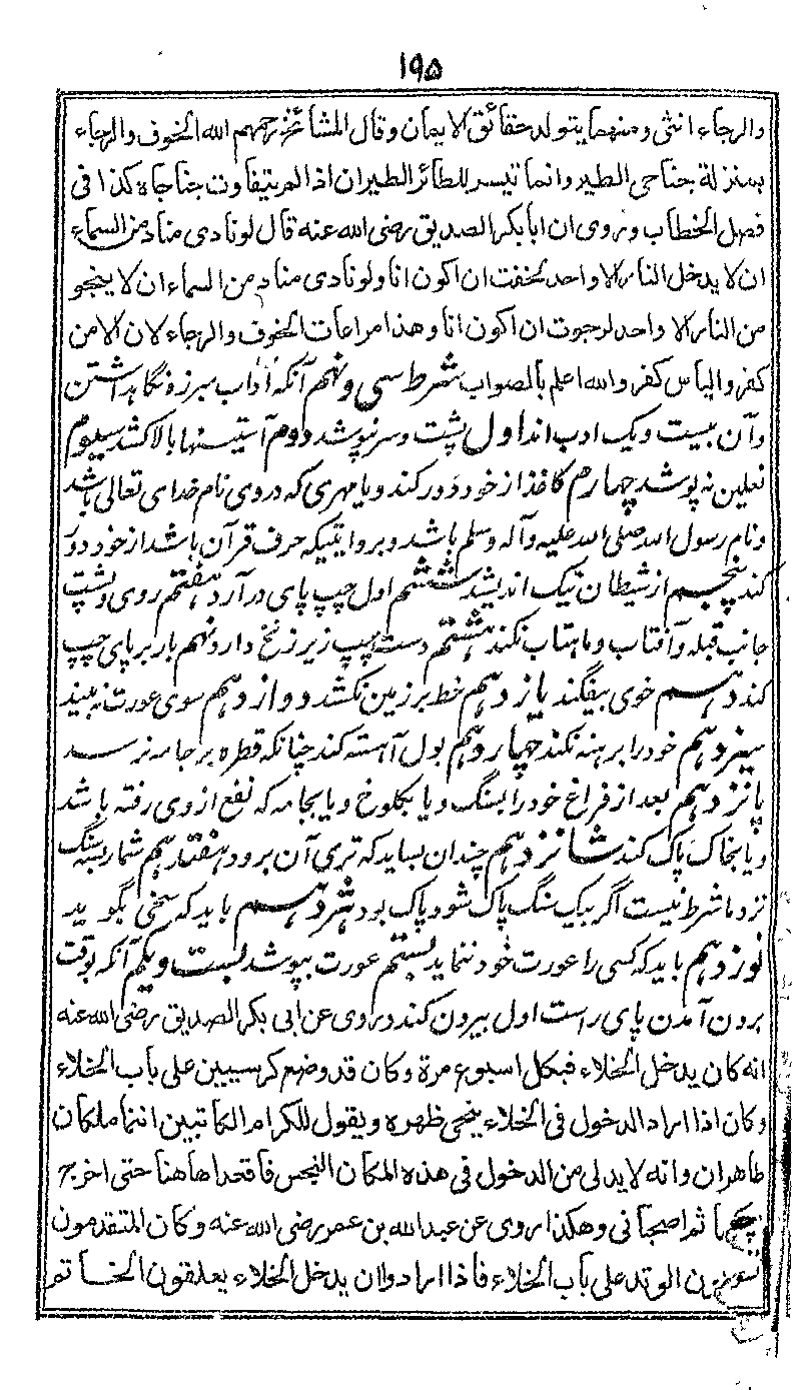 ۱۹۵
والرجاء انثى ومنهما يتولد حقائق الايمان وقال المشائخ رحمهم الله الخوف والرجاء
بمنزلة جناحى الطير وانما تيسر للطائر الطيران اذا لم يتفاوت جناجاه كذا فى
فصل الخطاب وروى ان ابابكر الصديق رضى الله عنه قال لو نادى مناد من السماء
ان لا يدخل النار الا واحد لخفت ان اكون انا ولو نادى مناد من السماء ان لا ينجو
من النار الا واحد لرجوت ان اكون انا وهذا مراعات الخوف والرجاء لان الامن
كفر والياس كفر والله اعلم بالصواب شرط سی ونهم آنکه آداب مبرزه نگاهداشتن
وآن بیست ویک ادب اند اول پشت وسر نپوشد دوم آستینها بالا کشد سیوم
نعلین نه پوشد چهارم کاغذ از خود دور کند ویا مهری که دروی نام خدای تعالی باشد
ونام رسول الله صلی الله علیه وآله وسلم باشد وبروایتیکه حرف قرآن باشد از خود دور
کند پنجم از شیطان نیک اندیشد ششم اول چپ پای در آرد هفتم روی وپشت
جانب قبله وآفتاب وماهتاب نکند هشتم دست چپ زیر زنخ دارد نهم بار بر پای چپ
کند دهم خوی بیفگند یازدهم خط بر زمین نکشد دوازدهم سوی عورت نه بیند
سیزدهم خود را برهنه نکند چهاردهم بول آهسته کند چنانکه قطره بر جامه نرسد
پانزدهم بعد از فراغ خود را بسنگ ویا بکلوخ ویا بجامه که نفع از وی رفته باشد
ویا بخاک پاک کند شانزدهم چندان بساید که تری آن برود هفتدهم شمار بسنگ
نزد ما شرط نیست اگر بیک سنگ پاک شود پاک بود هژدهم باید که سخن نگوید
نوزدهم باید که کسی را عورت خود ننماید بستم عورت بپوشد بست ویکم آنکه بوقت
برون آمدن پای راست اول بیرون کند وروى عن ابى بكر الصديق رضى الله عنه
انه كان يدخل الخلاء فى كل اسبوع مرة وكان قد وضع كرسيين على باب الخلاء
وكان اذا اراد الدخول فى الخلاء ينحى ظهره ويقول للكرام الكاتبين انتما ملكان
طاهران وانه لا بد لى من الدخول فى هذه المكان النجس فاقعدا هاهنا حتى اخرج
ثم اصحبانى وهكذا روى عن عبد الله بن عمر رضى الله عنه وكان المتقدمون
الوتد على باب الخلاء فاذا ارادوا ان يدخل الخلاء يعلقون الخاتم